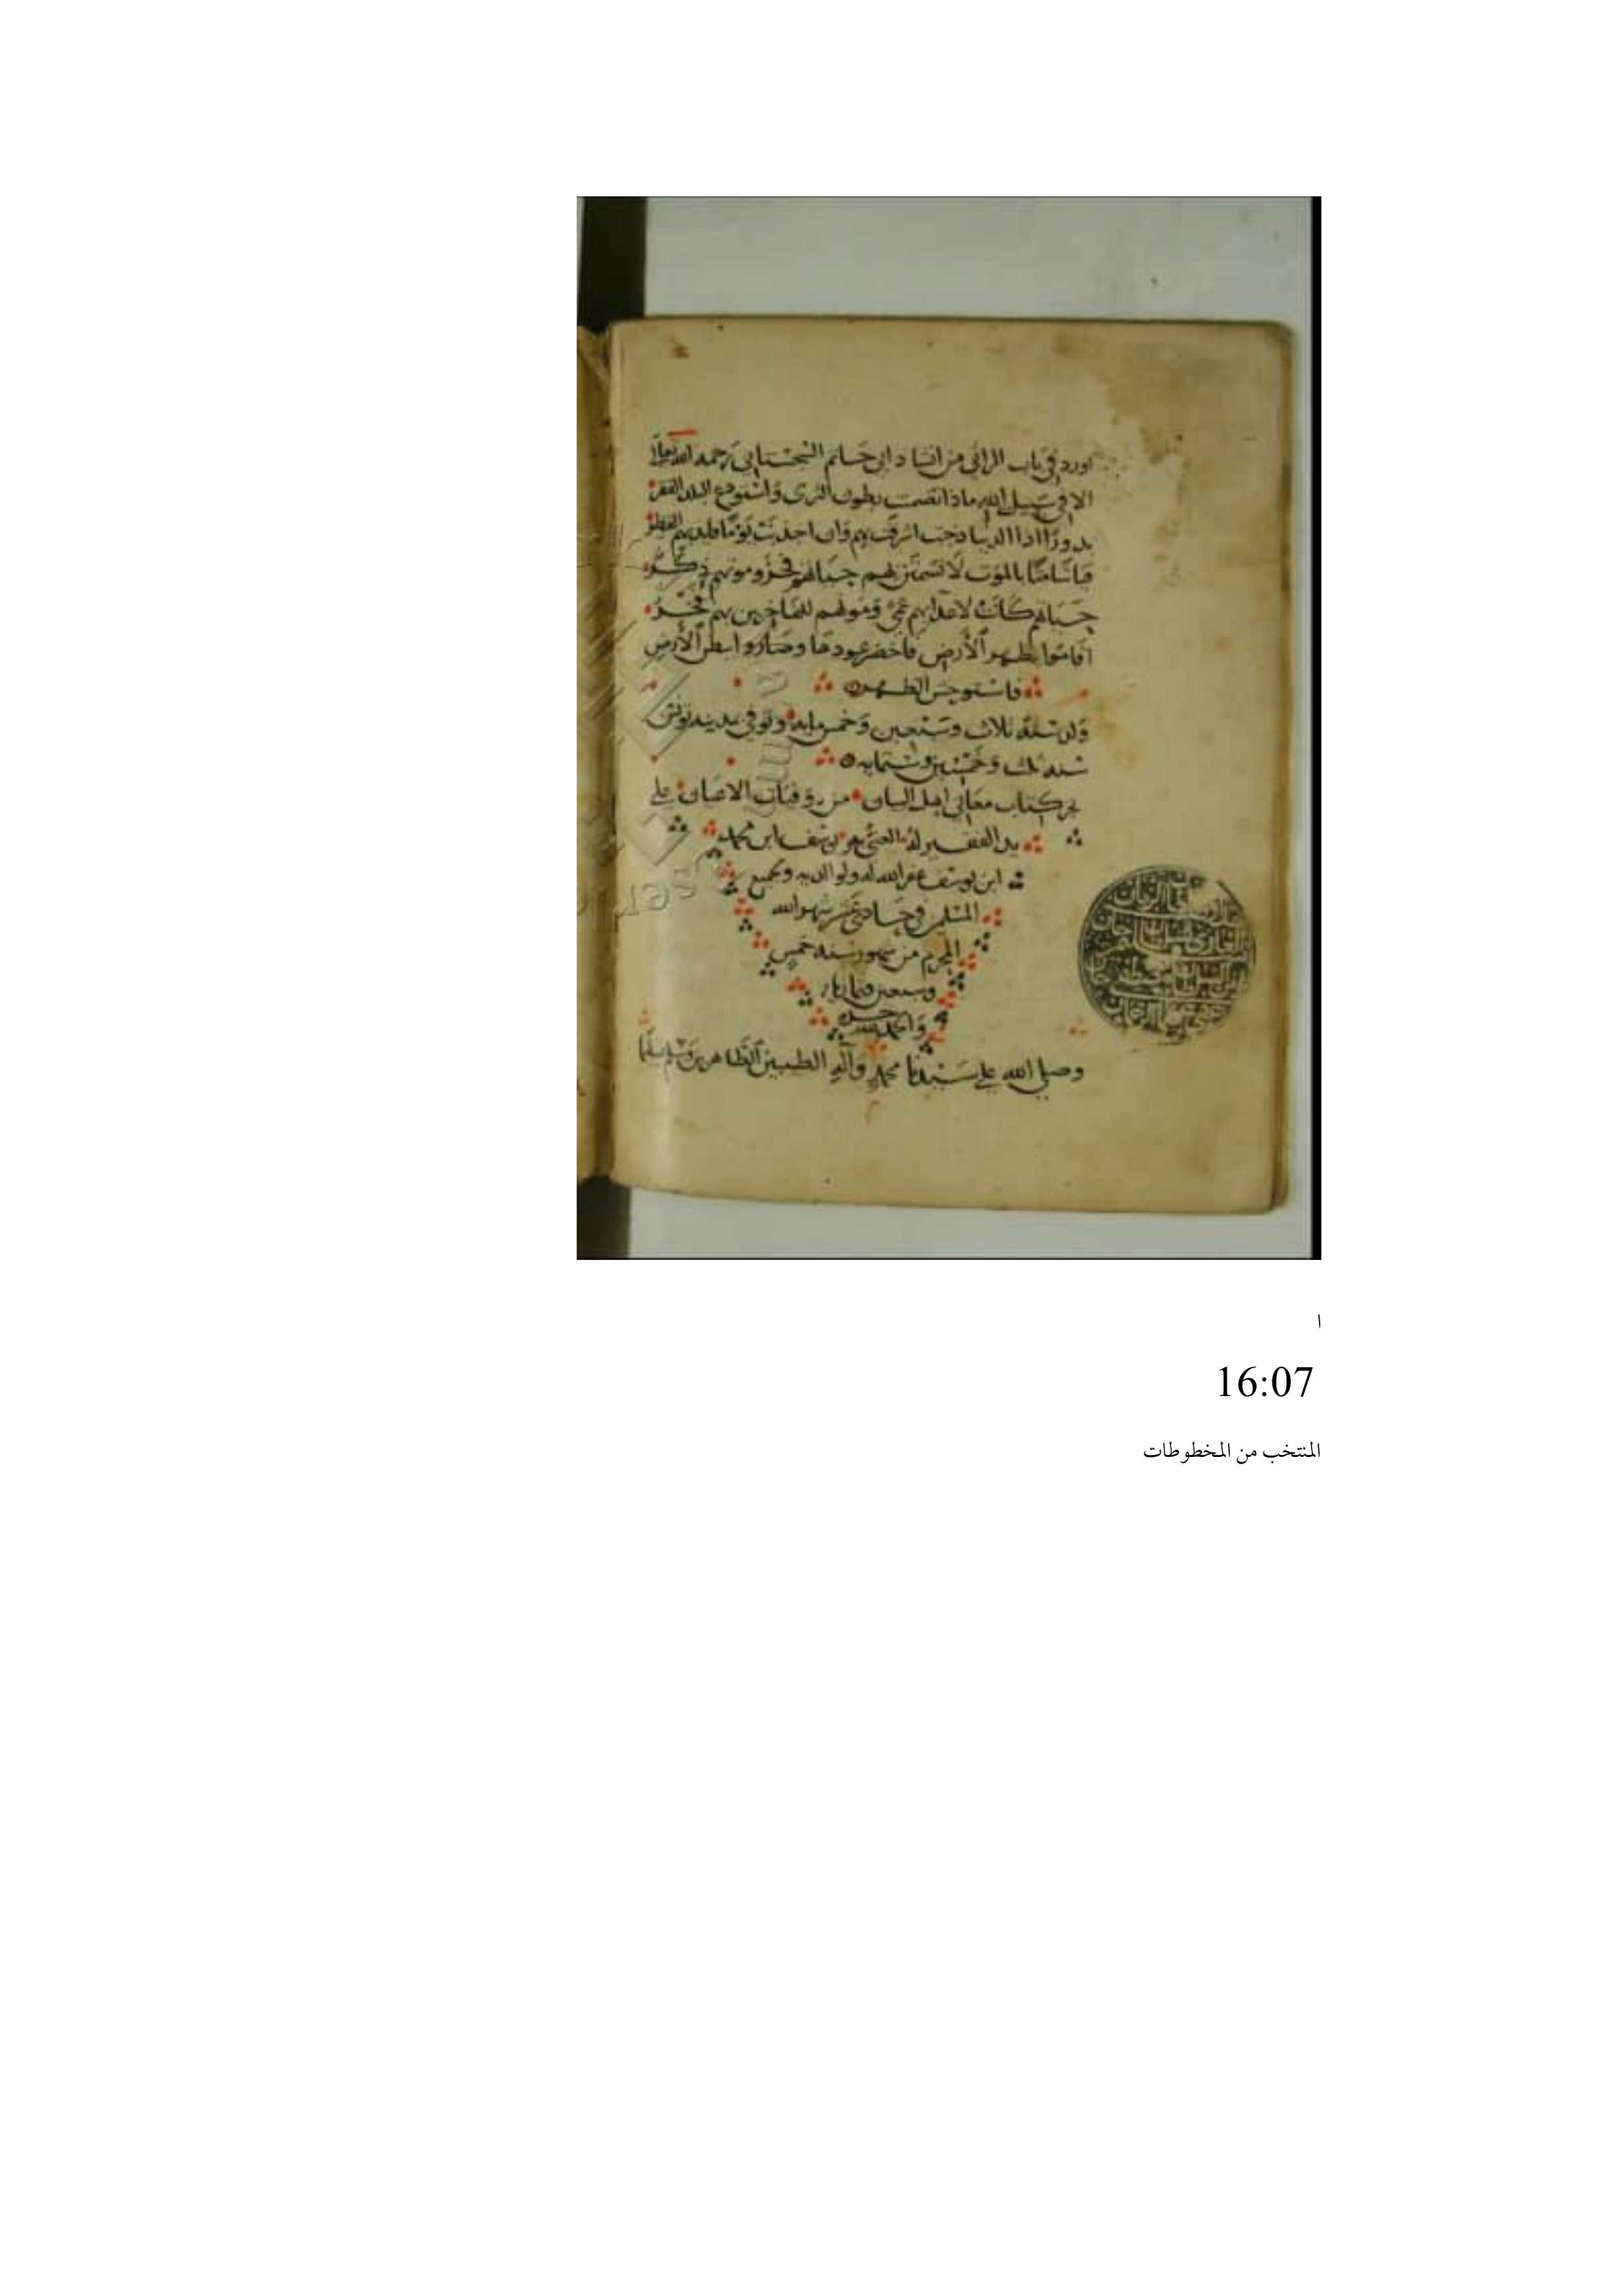 اورد في باب المراثي من انشاد ابي حاتم السجستاني رحمه الله تعالى
الا في سبيل الله ماذا تضمنت بطون الثرى واستودع البلد القفر
بدورًا اذا الدنيا دجت اشرقت بهم وان اجدبت يوما فايديهم القطر
فيا شامتًا بالموت لا تشمتن بهم حياتهم فخر وموتهم ذكر
حياتهم كانت لاعدايهم عمى وموتهم للفاخرين بهم فخر
اقاموا بظهر الأرض فاخضر عودها وصاروا ببطن الأرض
فاستوحش الظهر
ولد سنة ثلاث وسبعين وخمس مايه وتوفي بمدينه تونس
سنه ثلث وخمسين وستمايه
كتاب معاني اهل البيان من وفيات الاعيان على
يد الفقير له الغني يوسف ابن محمد
ابن يوسف غفر الله له ولوالديه ولجميع
المسلمين في حادي عشر شهر الله
المحرم من شهور سنه خمس
وسبعين وثمانمايه
والحمد لله
وصلى الله على سيدنا محمد وآله الطيبين الطاهرين وسلم تسليما
ا
16:07
المنتخب من المخطوطات